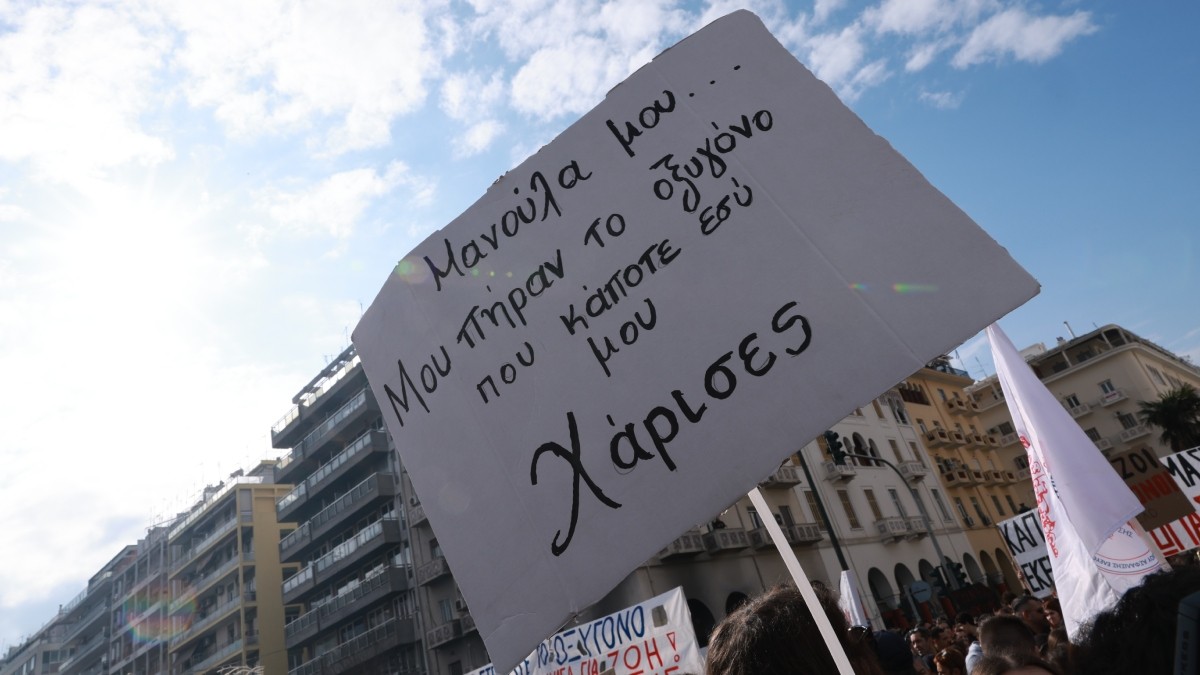 Μανούλα μου...
Μου πήραν το οξυγόνο
που κάποτε εσύ
μου
Χάρισες
ΤΟ ΟΞΥΓΟΝΟ
ΓΙΑ ΖΩΗ!
ΖΟΙ
ΚΑΠ
ΕΚΡ